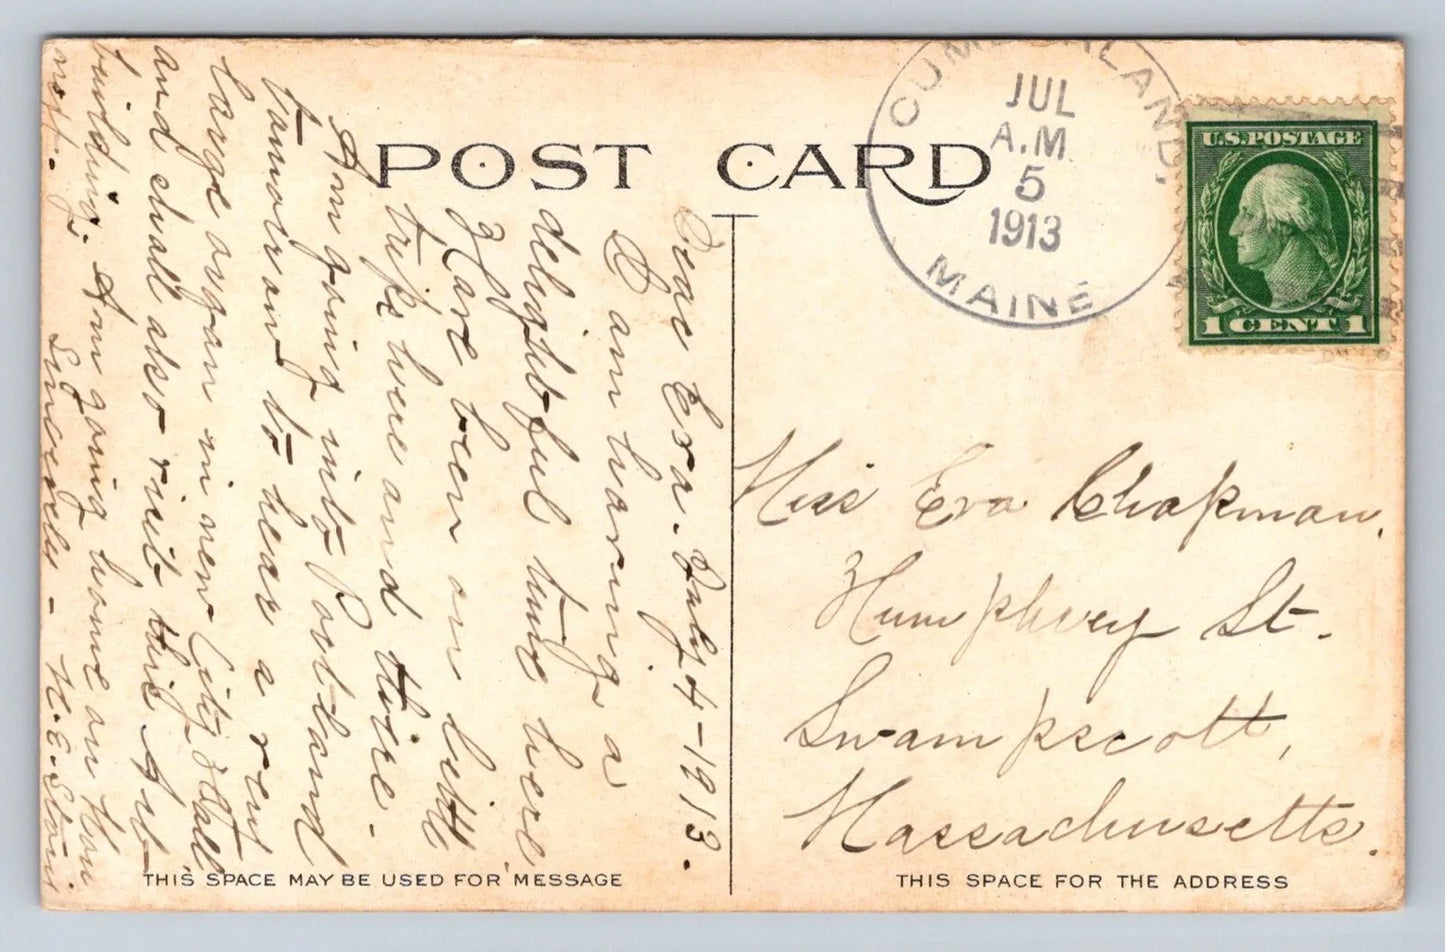 POST CARD
CUMBERLAND,
JUL
A.M.
5
1913
MAINE
U.S. POSTAGE
1 CENT 1
Dear Eva. July 4-1913.
I am having a
delightful time here
Have been on little
trips here and there.
Am going into Portland
tomorrow to hear a
large organ in new City Hall
and shall also visit this Art
building. Am going home on
next.
Sincerely -
Miss Eva Chapman.
Humphrey St.
Swampscott,
Massachusetts.
THIS SPACE MAY BE USED FOR MESSAGE
THIS SPACE FOR THE ADDRESS